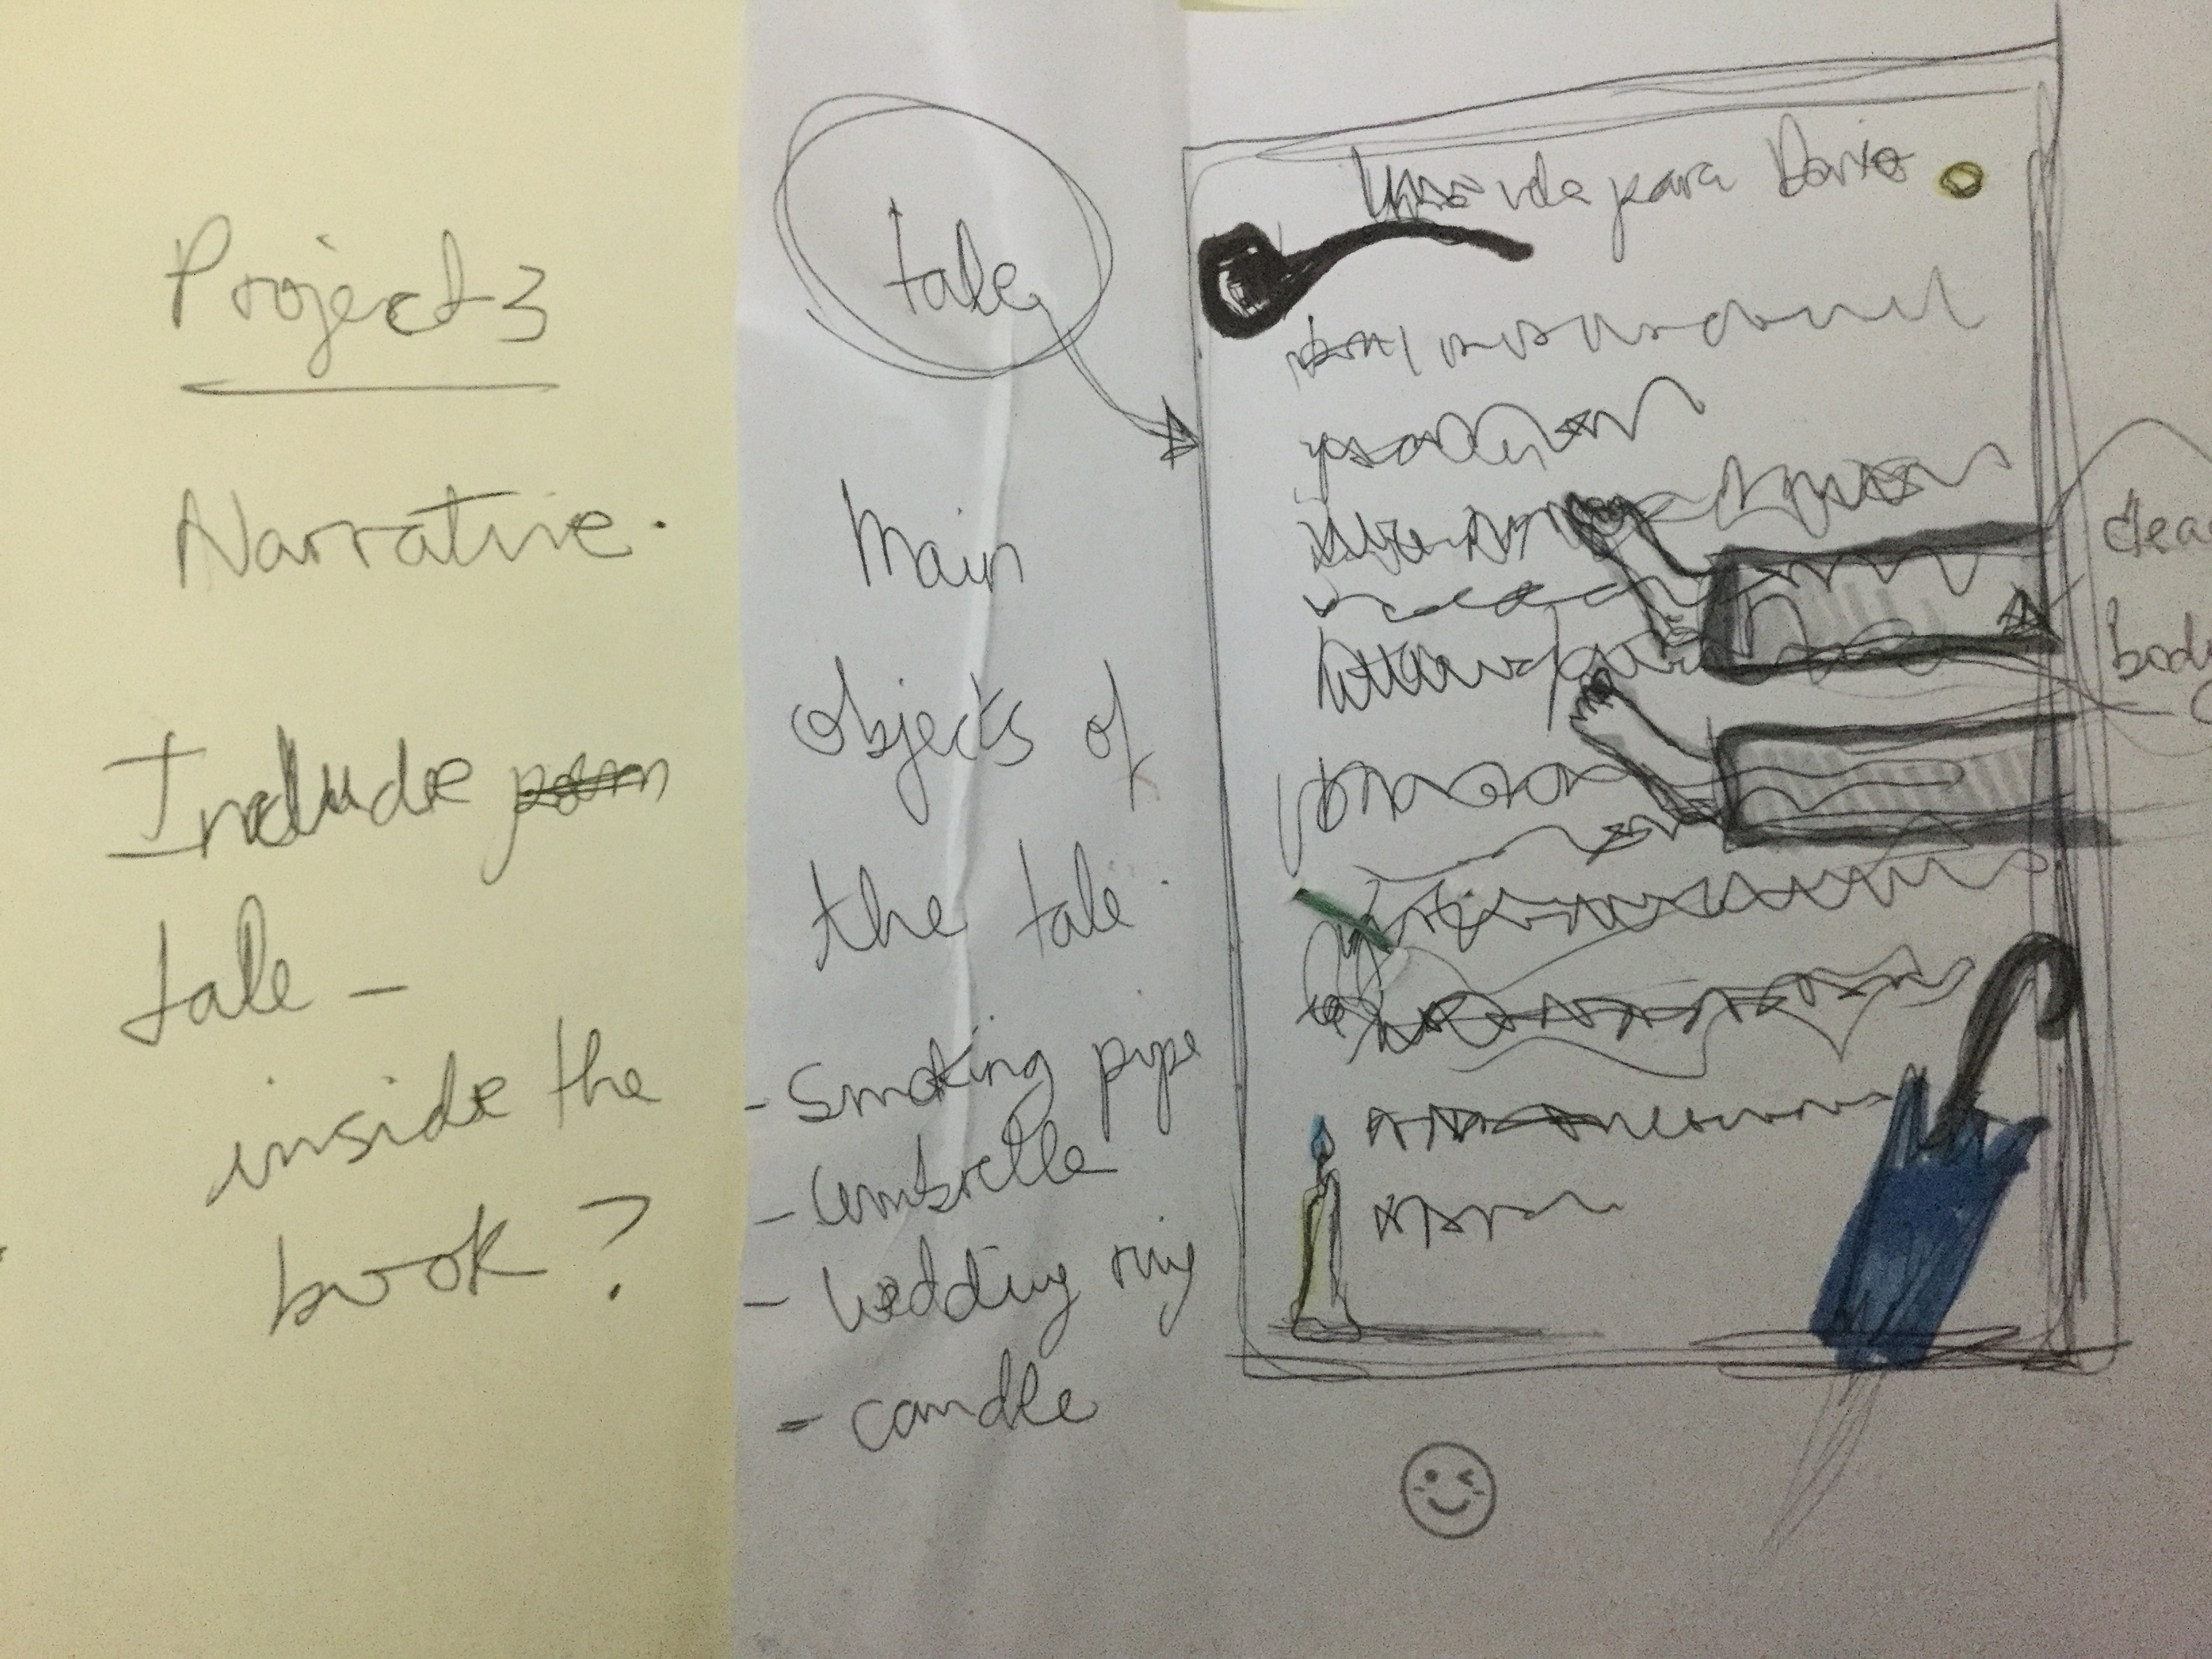 Project 3
Narrative.
Include poem
tale -
inside the
book ?
tale
Main
objects of
the tale.
- Smoking pipe
- umbrella
- wedding ring
- candle
para
body